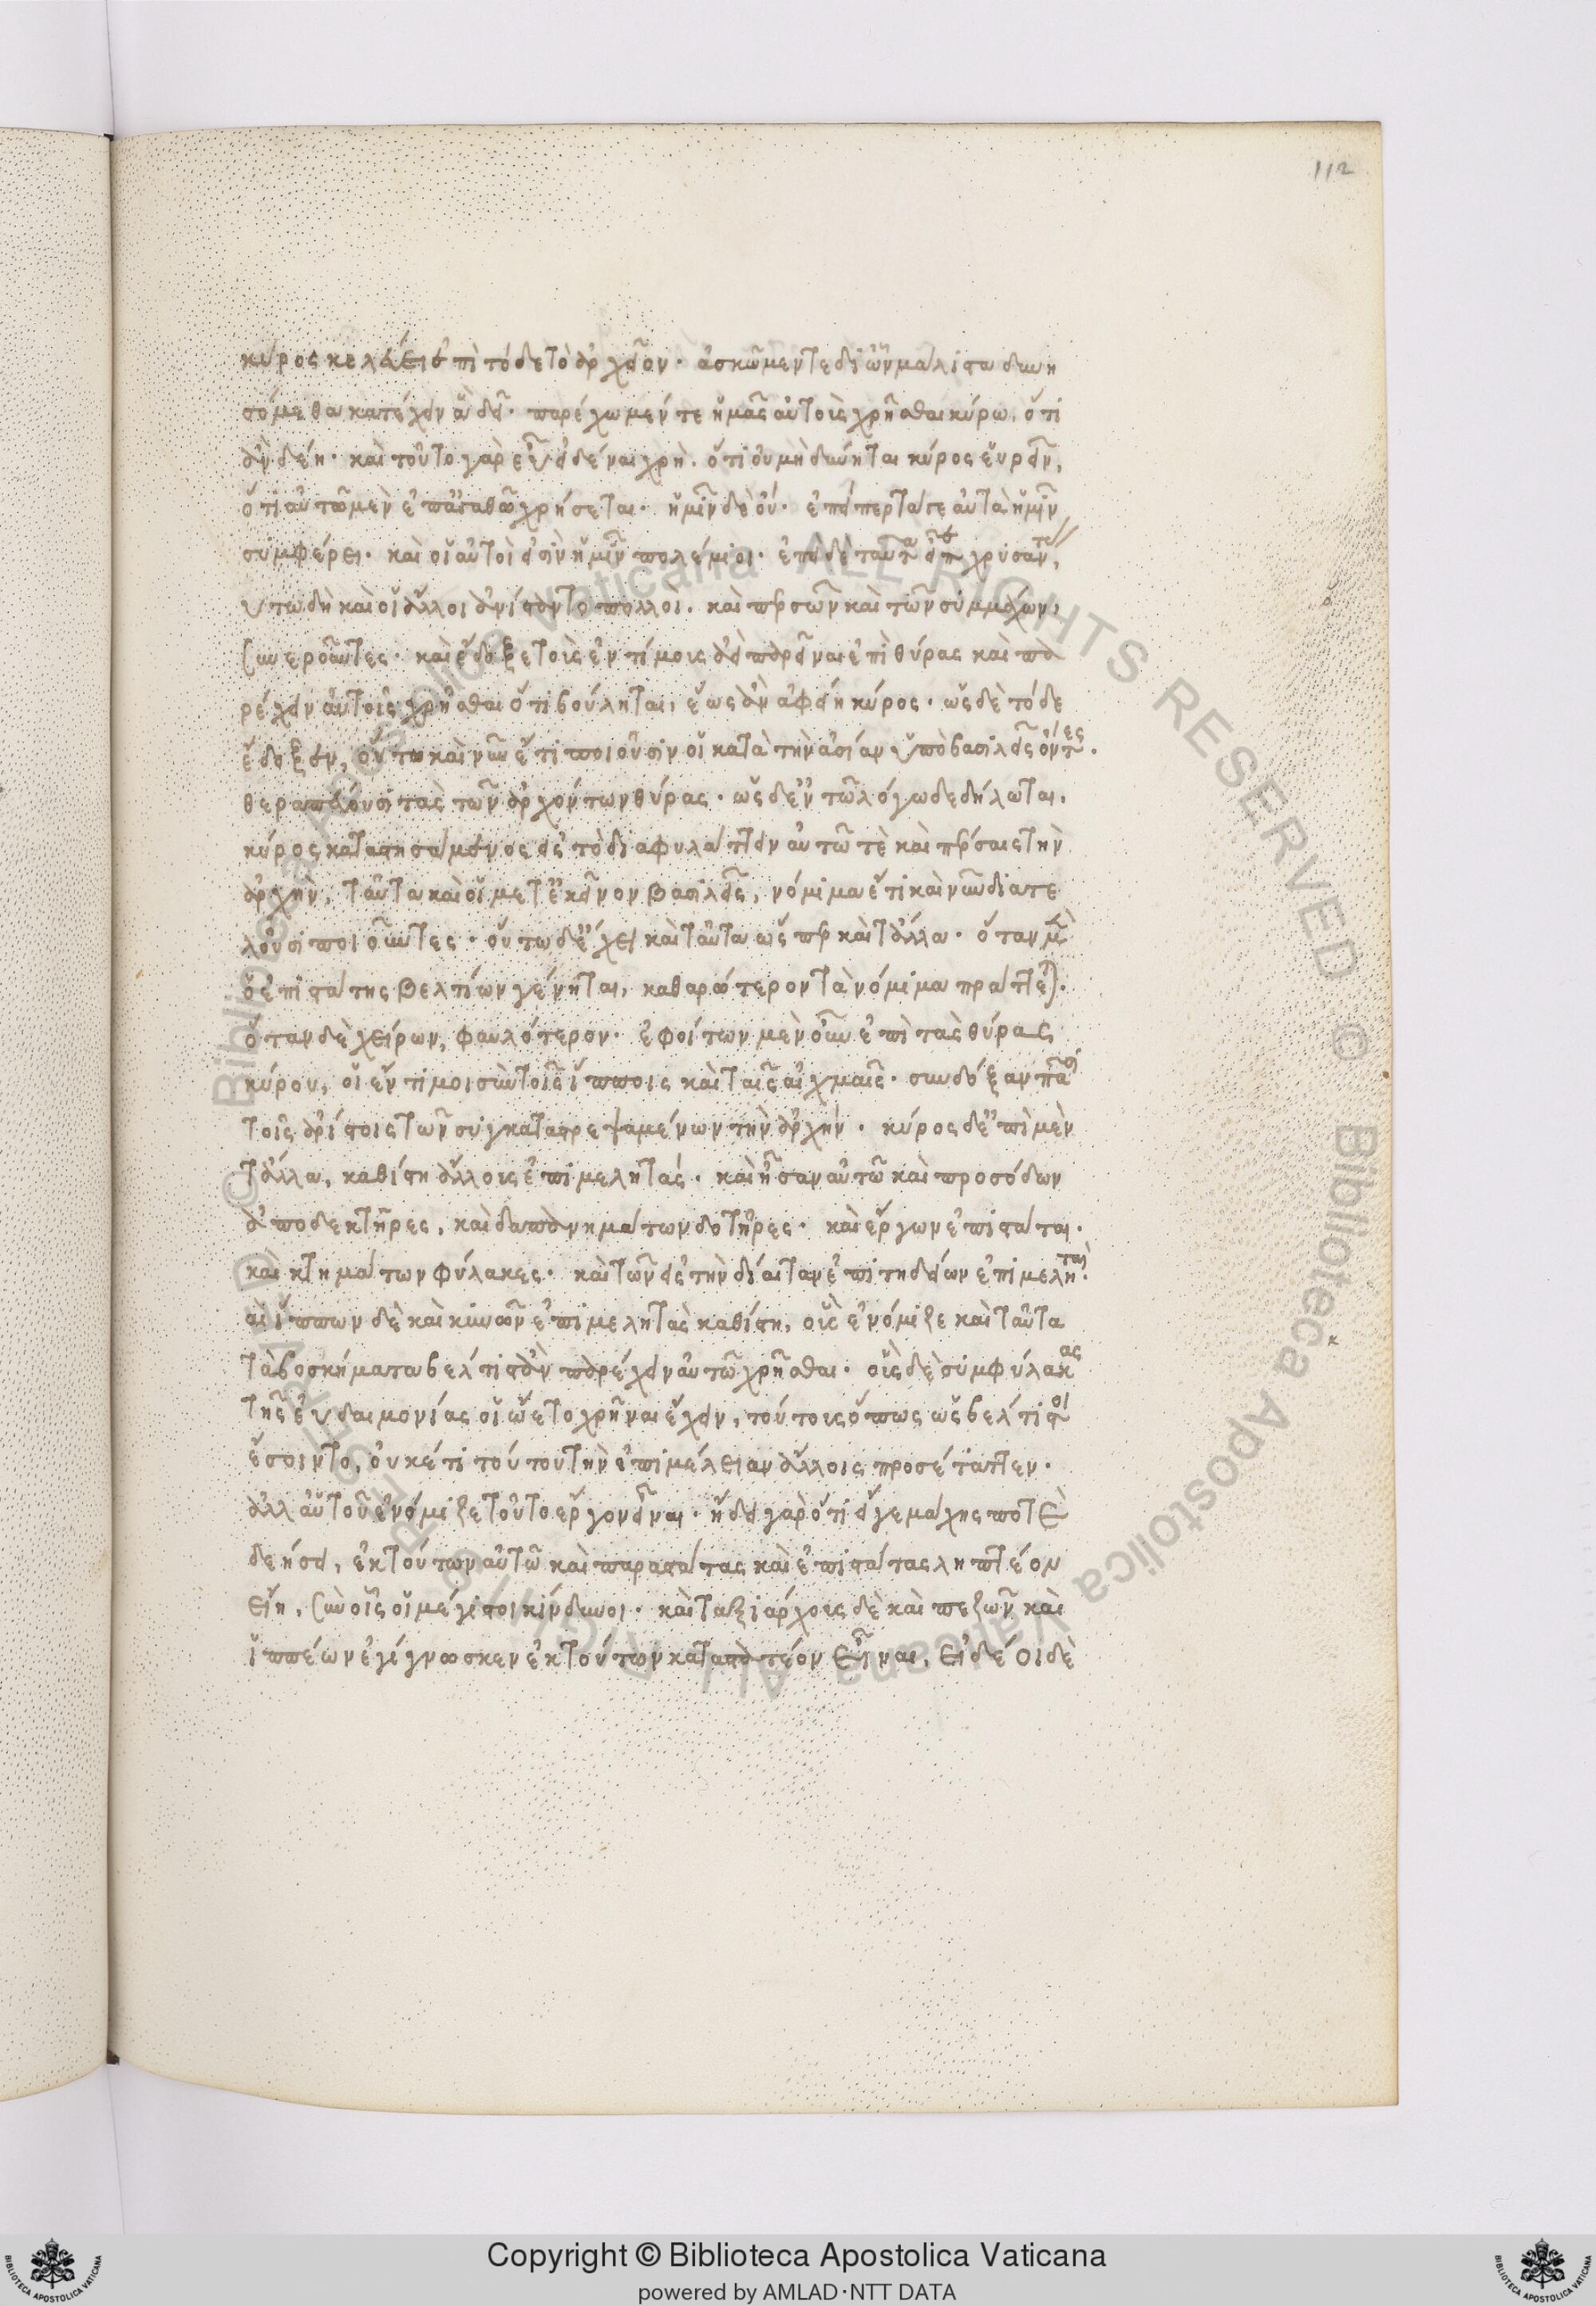 112
κύρος κελεύει ἐπὶ τόδε τὸ ἀρχεῖον· ἀσκῶμεν τε δι ὧν μάλιστα δυνη
σόμεθα κατέχειν ἃ δεῖ· παρέχωμέν τε ἡμᾶς αὐτοῖς χρῆσθαι κύρω, ὅτι
ἂν δέη· καὶ τοῦτο γὰρ εὖ εἰδέναι χρὴ, ὅτι οὐ μὴ δύνηται κύρος εὑρεῖν,
ὅτι αὑτῶ μὲν ἐπ ἀγαθῶ χρήσεται· ἡμῖν δὲ οὔ· ἐπείπερ τά τε αὐτὰ ἡμῖν
συμφέρει· καὶ οἱ αὐτοί εἰσιν ἡμῖν πολέμιοι· ἐπεὶ δὲ ταῦτα εἶπε χρυσάντας,
οὕτω δὴ καὶ οἱ ἄλλοι ἀνίσταντο πολλοὶ· καὶ περσῶν καὶ τῶν συμμάχων,
συνεροῦντες· καὶ ἔδοξε τοὶς ἐντίμοις ἀεὶ παρεῖναι ἐπὶ θύρας καὶ πα
ρέχειν αὑτοὶς χρῆσθαι ὅτι βούληται, ἕως ἂν ἀφείη κύρος· ὡς δὲ τότε
ἔδοξεν, οὕτω καὶ νῦν ἔτι ποιοῦσιν οἱ κατὰ τὴν ἀσίαν ὑπὸ βασιλεῖ ὄντες·
θεραπεύουσι τὰς τῶν ἀρχόντων θύρας· ὡς δ ἐν τῶ λόγω δεδήλωται,
κύρος καταστησάμενος εἰς τὸ διαφυλάττειν αὑτῶ τὲ καὶ πέρσαις τὴν
ἀρχὴν, ταῦτα καὶ οἱ μετ ἐκεῖνον βασιλεῖς, νόμιμα ἔτι καὶ νῦν διατε
λοῦσι ποιοῦντες· οὕτω δ ἔχει καὶ ταῦτα ὥσπερ καὶ τἄλλα· ὅταν μὲν
ὁ ἐπιστάτης βελτίων γένηται, καθαρώτερον τὰ νόμιμα πράττεται·
ὅταν δὲ χείρων, φαυλότερον· ἐφοίτων μὲν οὖν ἐπὶ τὰς θύρας
κύρου, οἱ ἔντιμοι σὺν τοῖς ἵπποις καὶ ταῖς αἰχμαῖς· συνδόξαν πᾶσι
τοῖς ἀρίστοις τῶν συγκαταστρεψαμένων τὴν ἀρχήν· κύρος δ ἐπὶ μὲν
τἄλλα, καθίστη ἄλλους ἐπιμελητάς· καὶ ἦσαν αὐτῶ καὶ προσόδων
ἀποδεκτῆρες, καὶ δαπανημάτων δοτῆρες· καὶ ἔργων ἐπιστάται·
καὶ κτημάτων φύλακες· καὶ τῶν εἰς τὴν δίαιταν ἐπιτηδείων ἐπιμεληταὶ·
καὶ ἵππων δὲ καὶ κυνῶν ἐπιμελητὰς καθίστη, οὓς ἐνόμιζε καὶ ταῦτα
τὰ βοσκήματα βέλτιστ ἂν παρέχειν αὐτῶ χρῆσθαι· οὓς δὲ συμφύλακας
τῆς εὐδαιμονίας οἱ ὤετο χρῆναι ἔχειν, τούτους ὅπως ὡς βέλτιστοι
ἔσοιντο, οὐκέτι τούτου τὴν ἐπιμέλειαν ἄλλοις προσέταττεν·
ἀλλ αὑτοῦ ἐνόμιζε τοῦτο ἔργον εἶναι· ἤδει γὰρ ὅτι εἴ γε μάχης ποτὲ
δεήσει, ἐκ τούτων αὐτῶ καὶ παραστάτας καὶ ἐπιστάτας ληπτέον
εἴη, σὺν οἷς οἱ μέγιστοι κίνδυνοι· καὶ ταξιάρχους δὲ καὶ πεζῶν καὶ
ἱππέων ἐγίγνωσκεν ἐκ τούτων κατασταтέον εἶναι, εἰ δέοι δὲ